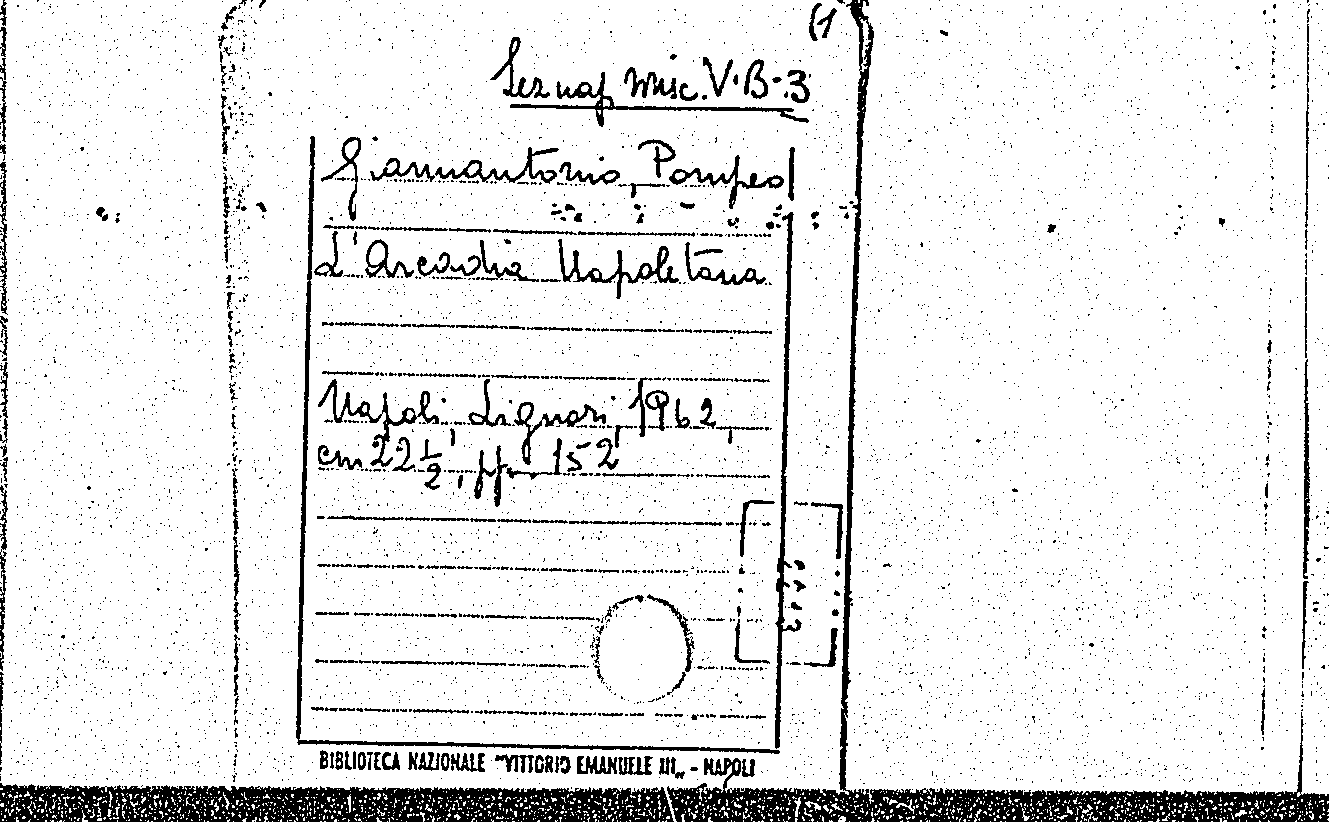 (1
Sez nap Misc. V.B.3
Giannantonio, Pompeo
L'Arcadia Napoletana
Napoli, Liguori, 1962,
cm 22 1/2, pp. 152
BIBLIOTECA NAZIONALE "VITTORIO EMANUELE III„ - NAPOLI